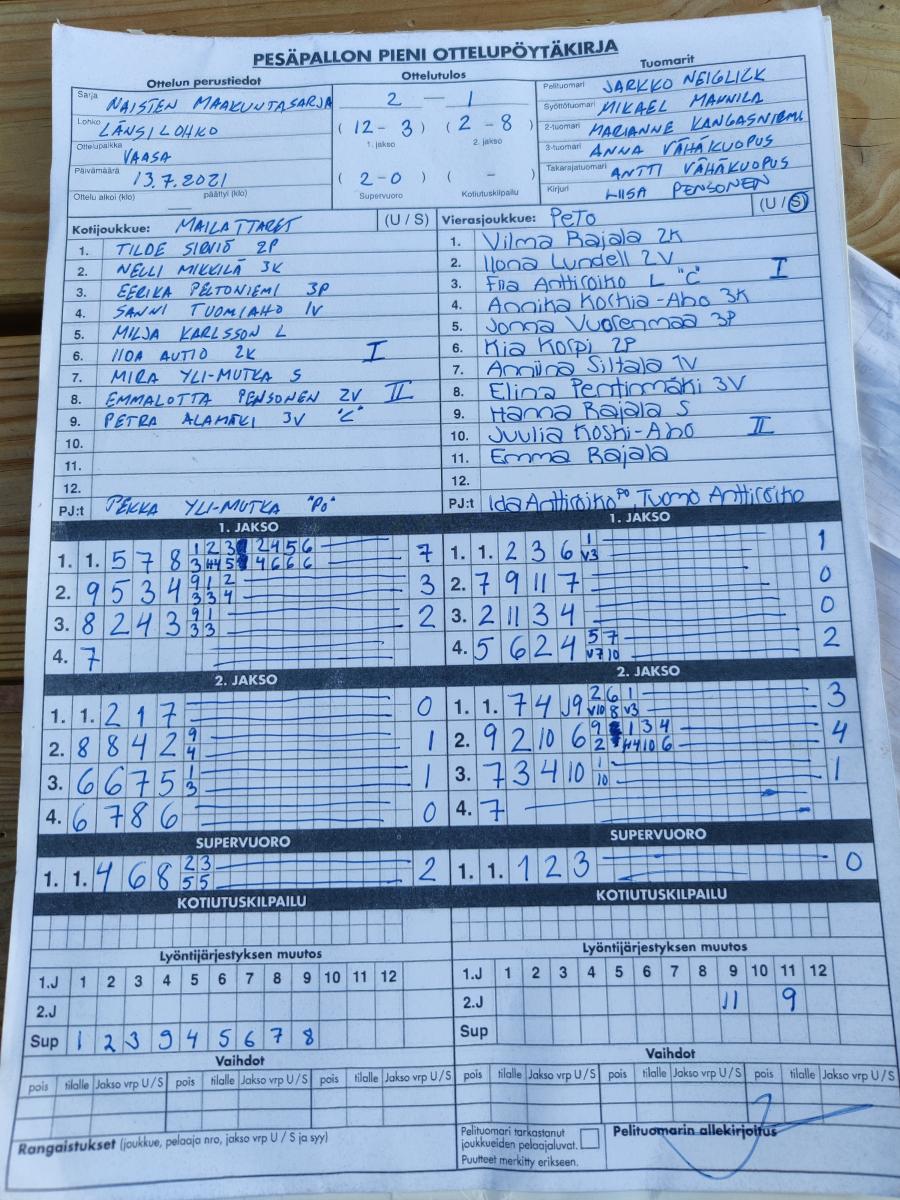 PESÄPALLON PIENI OTTELUPÖYTÄKIRJA
Ottelun perustiedot
Sarja NAISTEN MAAKUNTASARJA
Lohko LÄNSILOHKO
Ottelupaikka VAASA
Päivämäärä 13.7.2021
Ottelu alkoi (klo) päättyi (klo)
Ottelutulos
2 — 1
(12 - 3) (2 - 8)
1. jakso 2. jakso
(2 - 0) ( - )
Supervuoro Kotiutuskilpailu
Tuomarit
Pelituomari JARKKO NEIGLICK
Syöttötuomari MIKAEL MANNILA
2-tuomari MARIANNE KANGASNIEMI
3-tuomari ANNA VÄHÄKUOPUS
Takarajatuomari ANTTI VÄHÄKUOPUS
Kirjuri LIISA PENSONEN
Kotijoukkue: MAILATTARET (U / S)
1. TILDE SIRVIÖ 2P
2. NELLI MIKKILÄ 3K
3. EERIKA PELTONIEMI 3P
4. SANNI TUOMIAHO 1V
5. MILJA KARLSSON L
6. IIDA AUTIO 2K I
7. MIRA YLI-MUTKA S
8. EMMALOTTA PENSONEN 2V II
9. PETRA ALAMÄKI 3V "C"
10.
11.
12.
PJ:t PEKKA YLI-MUTKA "PO"
Vierasjoukkue: PeTo (U / S)
1. Vilma Rajala 2K
2. Ilona Lundell 2V
3. Fiia Anttiroiko L "C" I
4. Annika Koskia-Aho 3K
5. Jonna Vuorenmaa 3P
6. Kia Korpi 2P
7. Anniina Siltala 1V
8. Elina Pentinmäki 3V
9. Hanna Rajala S
10. Juulia Koski-Aho II
11. Emma Rajala
12.
PJ:t Ida Anttiroiko PO, Tuomo Anttiroiko
1. JAKSO
1. 1. 5 7 8 1 2 3 2 4 5 6 7
3 H4 5 4 6 6 6
2. 9 5 3 4 9 1 2 3
3 3 4
3. 8 2 4 3 9 1 2
3 3
4. 7
1. JAKSO
1. 1. 2 3 6 1 1
V3
2. 7 9 11 7 0
3. 2 11 3 4 0
4. 5 6 2 4 5 7 2
V7 10
2. JAKSO
1. 1. 2 1 7 0
2. 8 8 4 2 9 1
4
3. 6 6 7 5 1 1
3
4. 6 7 8 6 0
2. JAKSO
1. 1. 7 4 J9 2 6 1 3
V10 8 V3
2. 9 2 10 6 9 1 3 4 4
2 H4 10 6
3. 7 3 4 10 1 1
10
4. 7
SUPERVUORO
1. 1. 4 6 8 2 3 2
5 5
SUPERVUORO
1. 1. 1 2 3 0
KOTIUTUSKILPAILU
KOTIUTUSKILPAILU
Lyöntijärjestyksen muutos
1.J 1 2 3 4 5 6 7 8 9 10 11 12
2.J
Sup 1 2 3 9 4 5 6 7 8
Lyöntijärjestyksen muutos
1.J 1 2 3 4 5 6 7 8 9 10 11 12
2.J 11 9
Sup
Vaihdot
pois tilalle Jakso vrp U / S pois tilalle Jakso vrp U / S pois tilalle Jakso vrp U / S
Vaihdot
pois tilalle Jakso vrp U / S pois tilalle Jakso vrp U / S pois tilalle Jakso vrp U / S
Rangaistukset (joukkue, pelaaja nro, jakso vrp U / S ja syy)
Pelituomari tarkastanut
joukkueiden pelaajaluvat.
Puutteet merkitty erikseen.
Pelituomarin allekirjoitus